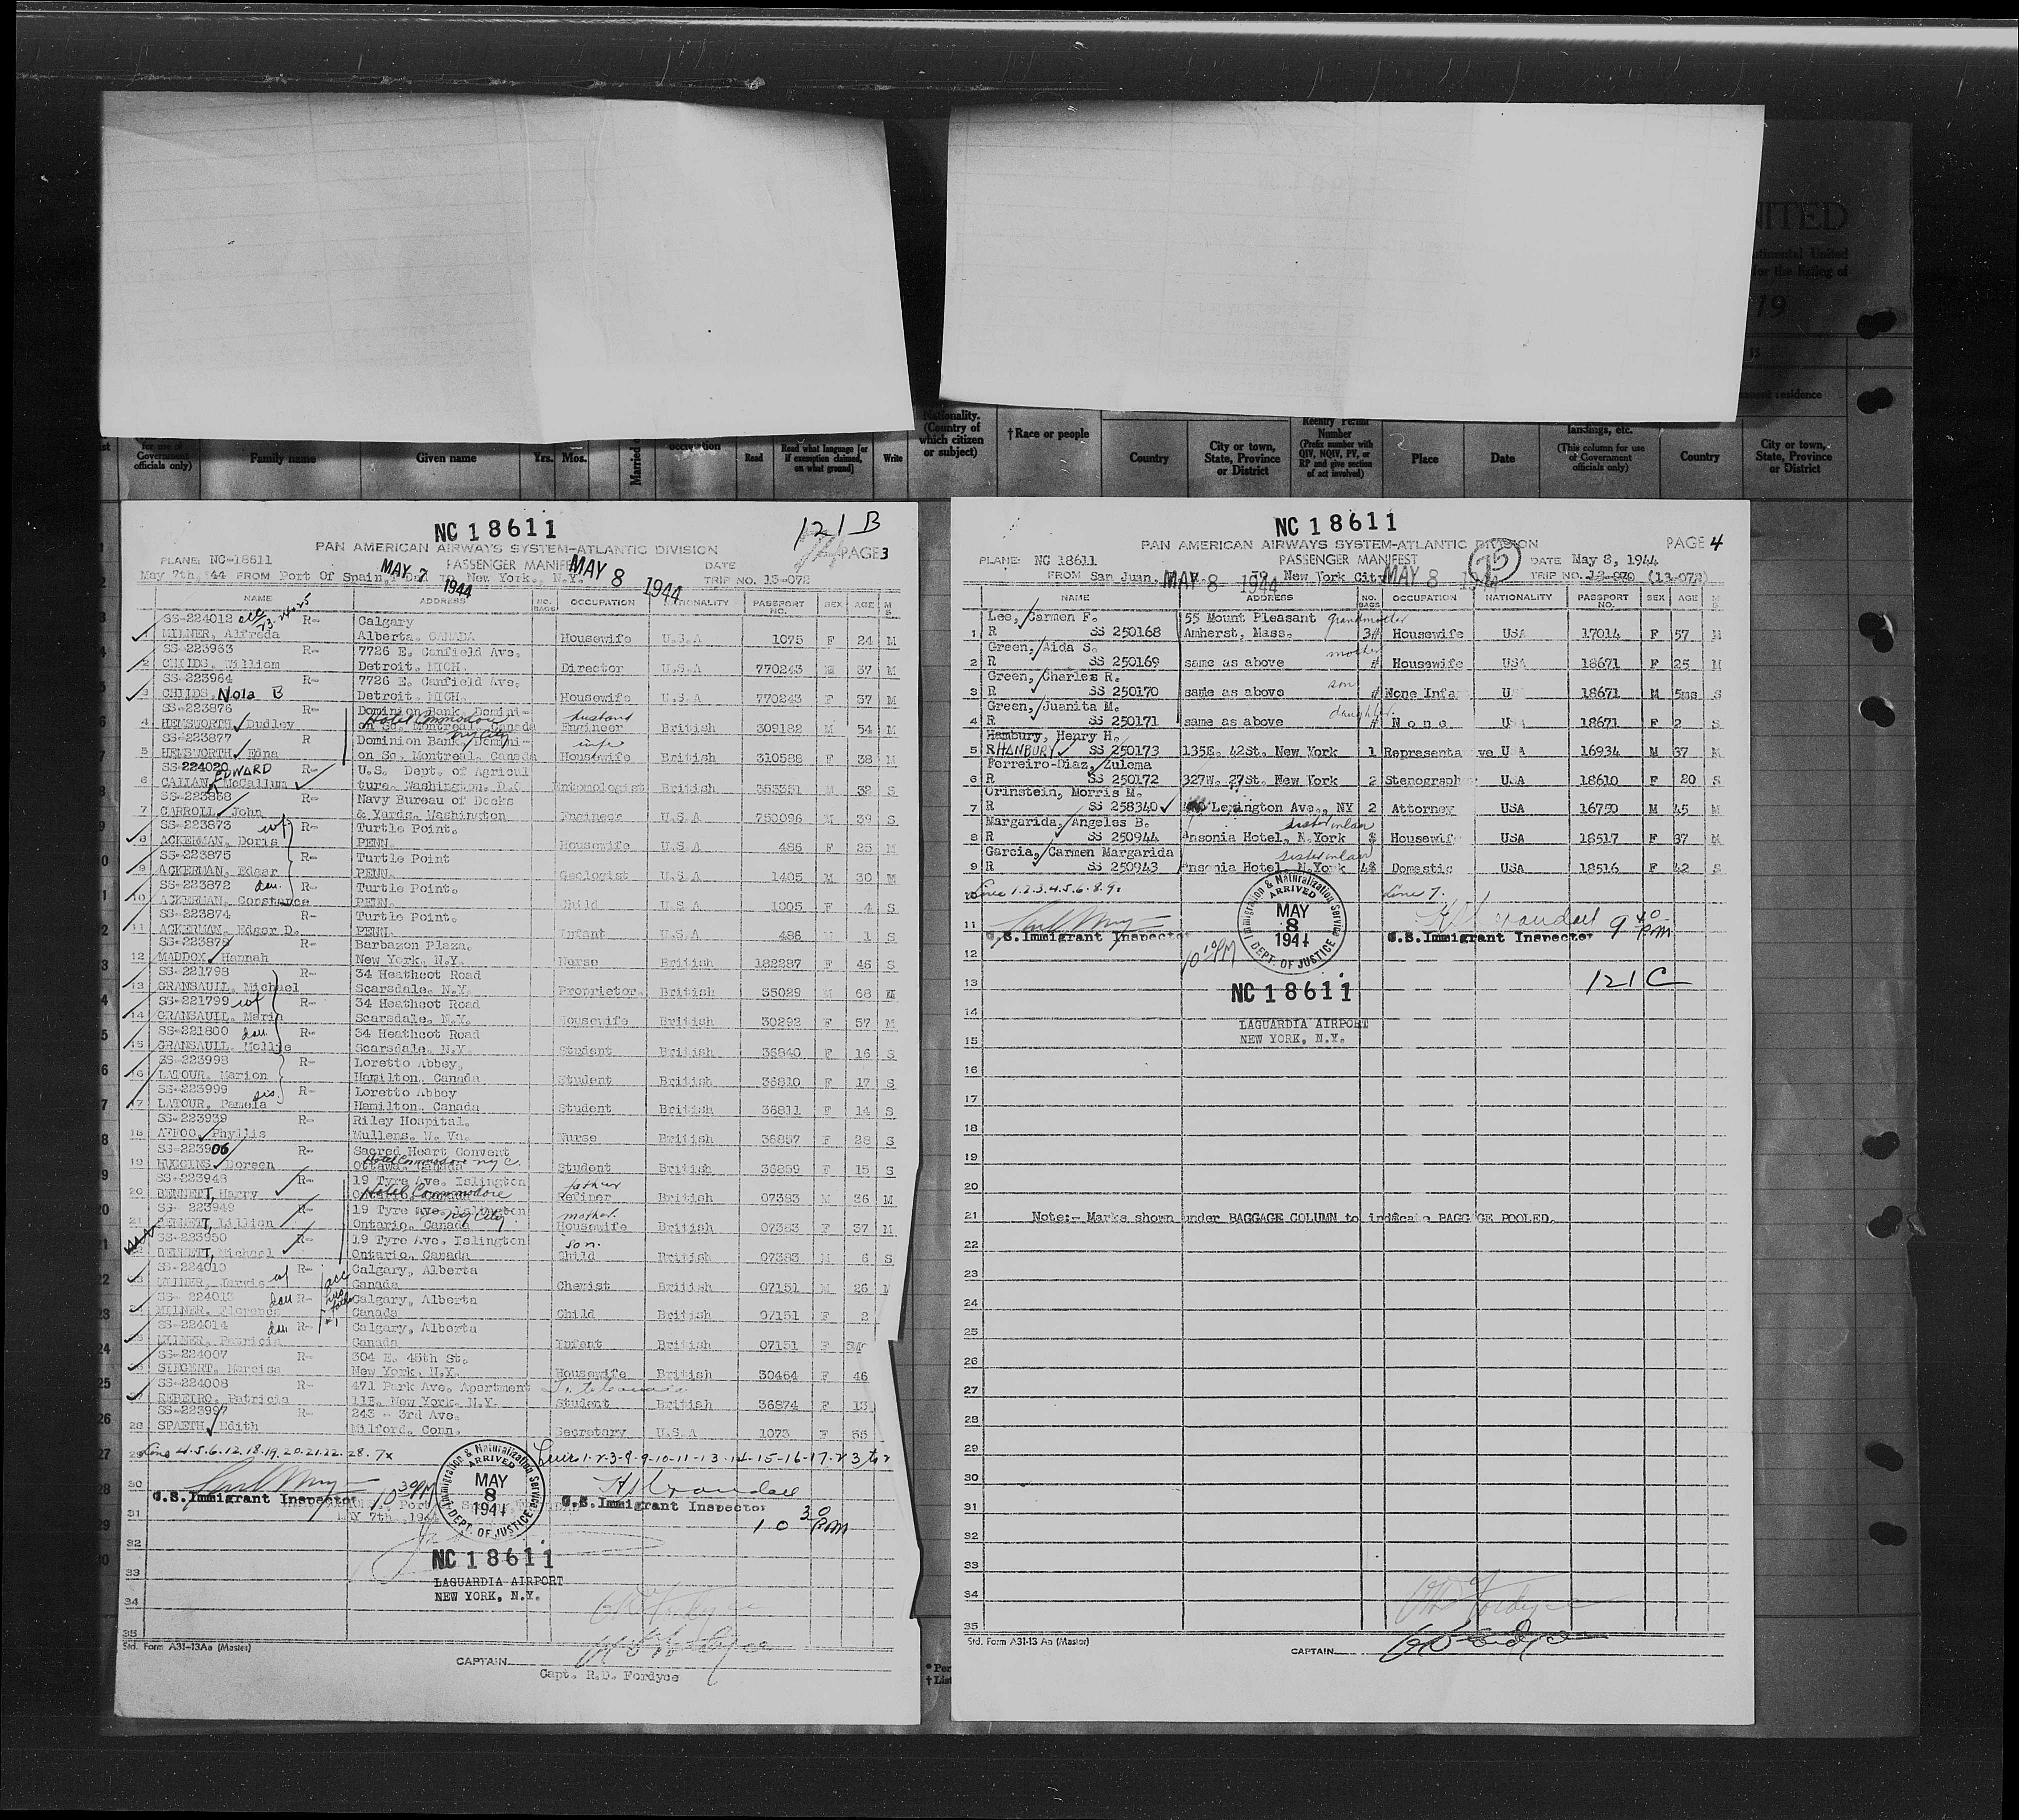 UNITED
Continental United
for the listing of
19
permanent residence
for use of
Government
officials only)
Family name
Given name
Yrs.
Mos.
Married
occupation
Read
Read what language [or
if exemption claimed,
on what ground]
Write
Nationality.
(Country of
which citizen
or subject)
†Race or people
Country
City or town,
State, Province
or District
Reentry Permit
Number
(Prefix number with
QIV, NQIV, PV, or
RP and give section
of act involved)
Place
Date
landings, etc.
(This column for use
of Government
officials only)
Country
City or town,
State, Province
or District
NC 18611
121 B
PAN AMERICAN AIRWAYS SYSTEM-ATLANTIC DIVISION
PAGE 3
PLANE: NC-18611 PASSENGER MANIFEST DATE
May 7th, '44 FROM Port Of Spain, MAY 7 1944 New York, N.Y. MAY 8 1944 TRIP NO. 13-078
NAME ADDRESS NO. BAGS OCCUPATION NATIONALITY PASSPORT NO. SEX AGE M S
SS-224012 R- Calgary
1 MILNER, Alfreda Alberta, CANADA Housewife U.S.A 1075 F 24 M
SS-223963 R- 7726 E. Canfield Ave.
2 CHILDS, William Detroit, MICH. Director U.S.A 770243 M 37 M
SS-223964 R- 7726 E. Canfield Ave.
3 CHILDS, Nola B Detroit, MICH. Housewife U.S.A 770243 F 37 M
SS-223876 R- Dominion Bank, Domini-
Hotel Commodore husband
4 HEMSWORTH, Dudley on Sq. Montreal, Canada Engineer British 309182 M 54 M
NY City
SS-223877 R Dominion Bank, Domini- wife
5 HEMSWORTH, Edna on Sq. Montreal, Canada Housewife British 310588 F 38 M
SS-224020 EDWARD R- U.S. Dept. of Agricul
6 CALLAN, McCallum ture, Washington, D.C Entomologist British 353351 M 32 S
SS-223868 R- Navy Bureau of Docks
7 CARROLL, John & Yards, Washington Engineer U.S.A 750096 M 39 S
SS-223873 wf R- Turtle Point,
8 ACKERMAN, Doris PENN. Housewife U.S.A 486 F 25 M
SS-223875 R- Turtle Point
9 ACKERMAN, Edgar PENN. Geologist U.S.A 1405 M 30 M
SS-223872 dau. R- Turtle Point,
10 ACKERMAN, Constance PENN. Child U.S.A 1005 F 4 S
SS-223874 R- Turtle Point,
11 ACKERMAN, Edgar D. PENN. Infant U.S.A 486 M 1 S
SS-223878 R- Barbazon Plaza,
12 MADDOX, Hannah New York, N.Y. Nurse British 182287 F 46 S
SS-221798 R- 34 Heathcot Road
13 GRANSAULL, Michael Scarsdale, N.Y. Proprietor British 35029 M 68 M
SS-221799 wf R- 34 Heathcot Road
14 GRANSAULL, Maria Scarsdale, N.Y. Housewife British 30292 F 57 M
SS-221800 dau R- 34 Heathcot Road
15 GRANSAULL, Mollie Scarsdale, N.Y. Student British 36840 F 16 S
SS-223998 R- Loretto Abbey,
16 LATOUR, Marion Hamilton, Canada Student British 36810 F 17 S
SS-223999 sis. R- Loretto Abbey
17 LATOUR, Pamela Hamilton, Canada Student British 36811 F 14 S
SS-223939 R- Riley Hospital,
18 AFFOO, Phyllis Mullens, W. Va. Nurse British 36857 F 28 S
SS-223906 R- Sacred Heart Convent
Hotel Commodore NYC
19 HUGGINS, Doreen Ottawa, Canada Student British 36859 F 15 S
SS-223948 R- 19 Tyre Ave. Islington father
Hotel Commodore
20 BENNETT, Harry Ontario, Canada Refiner British 07383 M 36 M
SS-223949 19 Tyre Ave. Islington mother
NY City
21 BENNETT, Lillian Ontario, Canada Housewife British 07383 F 37 M
SS-223950 R- 19 Tyre Ave. Islington son
22 BENNETT, Michael Ontario, Canada Child British 07383 M 6 S
SS-224010 R- Calgary, Alberta
23 MILNER, Jarvis Canada Chemist British 07151 M 26 M
SS-224013 dau R- Calgary, Alberta
24 MILNER, Florence Canada Child British 07151 F 2
SS-224014 dau R- Calgary, Alberta
25 MILNER, Patricia Canada Infant British 07151 F
SS-224007 R- 304 E. 45th St.
26 SIEGERT, Narcisa New York, N.Y. Housewife British 30464 F 46
SS-224008 R- 471 Park Ave. Apartment
27 REBEIRO, Patricia 11E, New York, N.Y. Student British 36874 F 13
SS-223997 R- 243 - 3rd Ave.
28 SPAETH, Edith Milford, Conn. Secretary U.S.A 1073 F 55
29 Lines 4.5.6.12.18.19.20.21.22.28.7x Lines 1-2-3-8-9-10-11-13-14-15-16-17-23 to
30
U.S. Immigrant Inspector 10 30 PM U.S. Immigrant Inspector
31 MAY 7th, 1944 10 30 PM
Immigration & Naturalization Service
ARRIVED
MAY
8
1944
DEPT. OF JUSTICE
32
NC 18611
33
LAGUARDIA AIRPORT
NEW YORK, N.Y.
34
35
Std. Form A31-13Aa (Master)
CAPTAIN
Capt. R.D. Fordyce
NC 18611
PAN AMERICAN AIRWAYS SYSTEM-ATLANTIC DIVISION
PAGE 4
PLANE: NC 18611 PASSENGER MANIFEST 75 DATE May 8, 1944
FROM San Juan, MAY 8 1944 TO New York City MAY 8 1944 TRIP NO. 13-070 (13-078)
NAME ADDRESS NO. BAGS OCCUPATION NATIONALITY PASSPORT NO. SEX AGE M S
Lee, Carmen F. 55 Mount Pleasant grandmother
1 R SS 250168 Amherst, Mass. 3# Housewife USA 17014 F 57 M
Green, Aida S. mother
2 R SS 250169 same as above # Housewife USA 18671 F 25 M
Green, Charles R. son
3 R SS 250170 same as above # None Infa U 18671 M 5ms S
Green, Juanita M. daughter
4 R SS 250171 same as above # None USA 18671 F 2 S
Hambury, Henry H.
5 R HANBURY SS 250173 135E. 42St. New York 1 Representa ve USA 16934 M 37 M
Forreiro-Diaz, Zulema
6 R SS 250172 327W. 27St. New York 2 Stenograph USA 18610 F 20 S
Orinstein, Morris M.
7 R SS 258340 Lexington Ave., NY 2 Attorney USA 16750 M 45 M
Margarida, Angeles B. sister in law
8 R SS 250944 Ansonia Hotel, N.York $ Housewif USA 18517 F 37 M
Garcia, Carmen Margarida sister in law
9 R SS 250943 Ansonia Hotel, N.York 4$ Domestic USA 18516 F 42 S
10 Lines 1.2.3.4.5.6.8.9x Line 7.
11
U.S. Immigrant Inspector 10 10 PM U.S. Immigrant Inspector 9 40 PM
Immigration & Naturalization Service
ARRIVED
MAY
8
1944
DEPT. OF JUSTICE
12
13 NC 18611 121 C
14
LAGUARDIA AIRPORT
15 NEW YORK, N.Y.
16
17
18
19
20
21 Note:- Marks shown under BAGGAGE COLUMN to indicate BAGGAGE POOLED.
22
23
24
25
26
27
28
29
30
31
32
33
34
35
Std. Form A31-13 Aa (Master)
CAPTAIN
* Per
† List